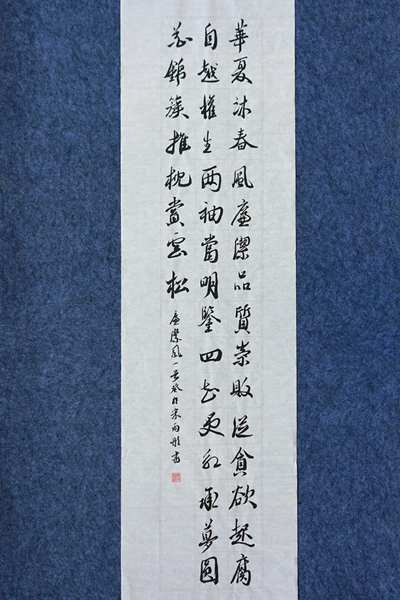 華夏沐春風廉潔品質崇敗從貪欲起腐
自越權生两袖當明鑒四知更承夢圓
花錦簇推枕賞雲松
廉潔風一首癸向書